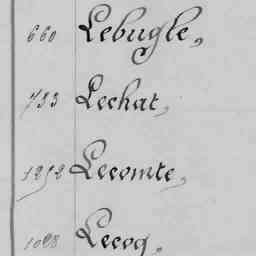 660 Lebugle,
733 Lechat,
1292 Lecomte,
1028 Lecoq,